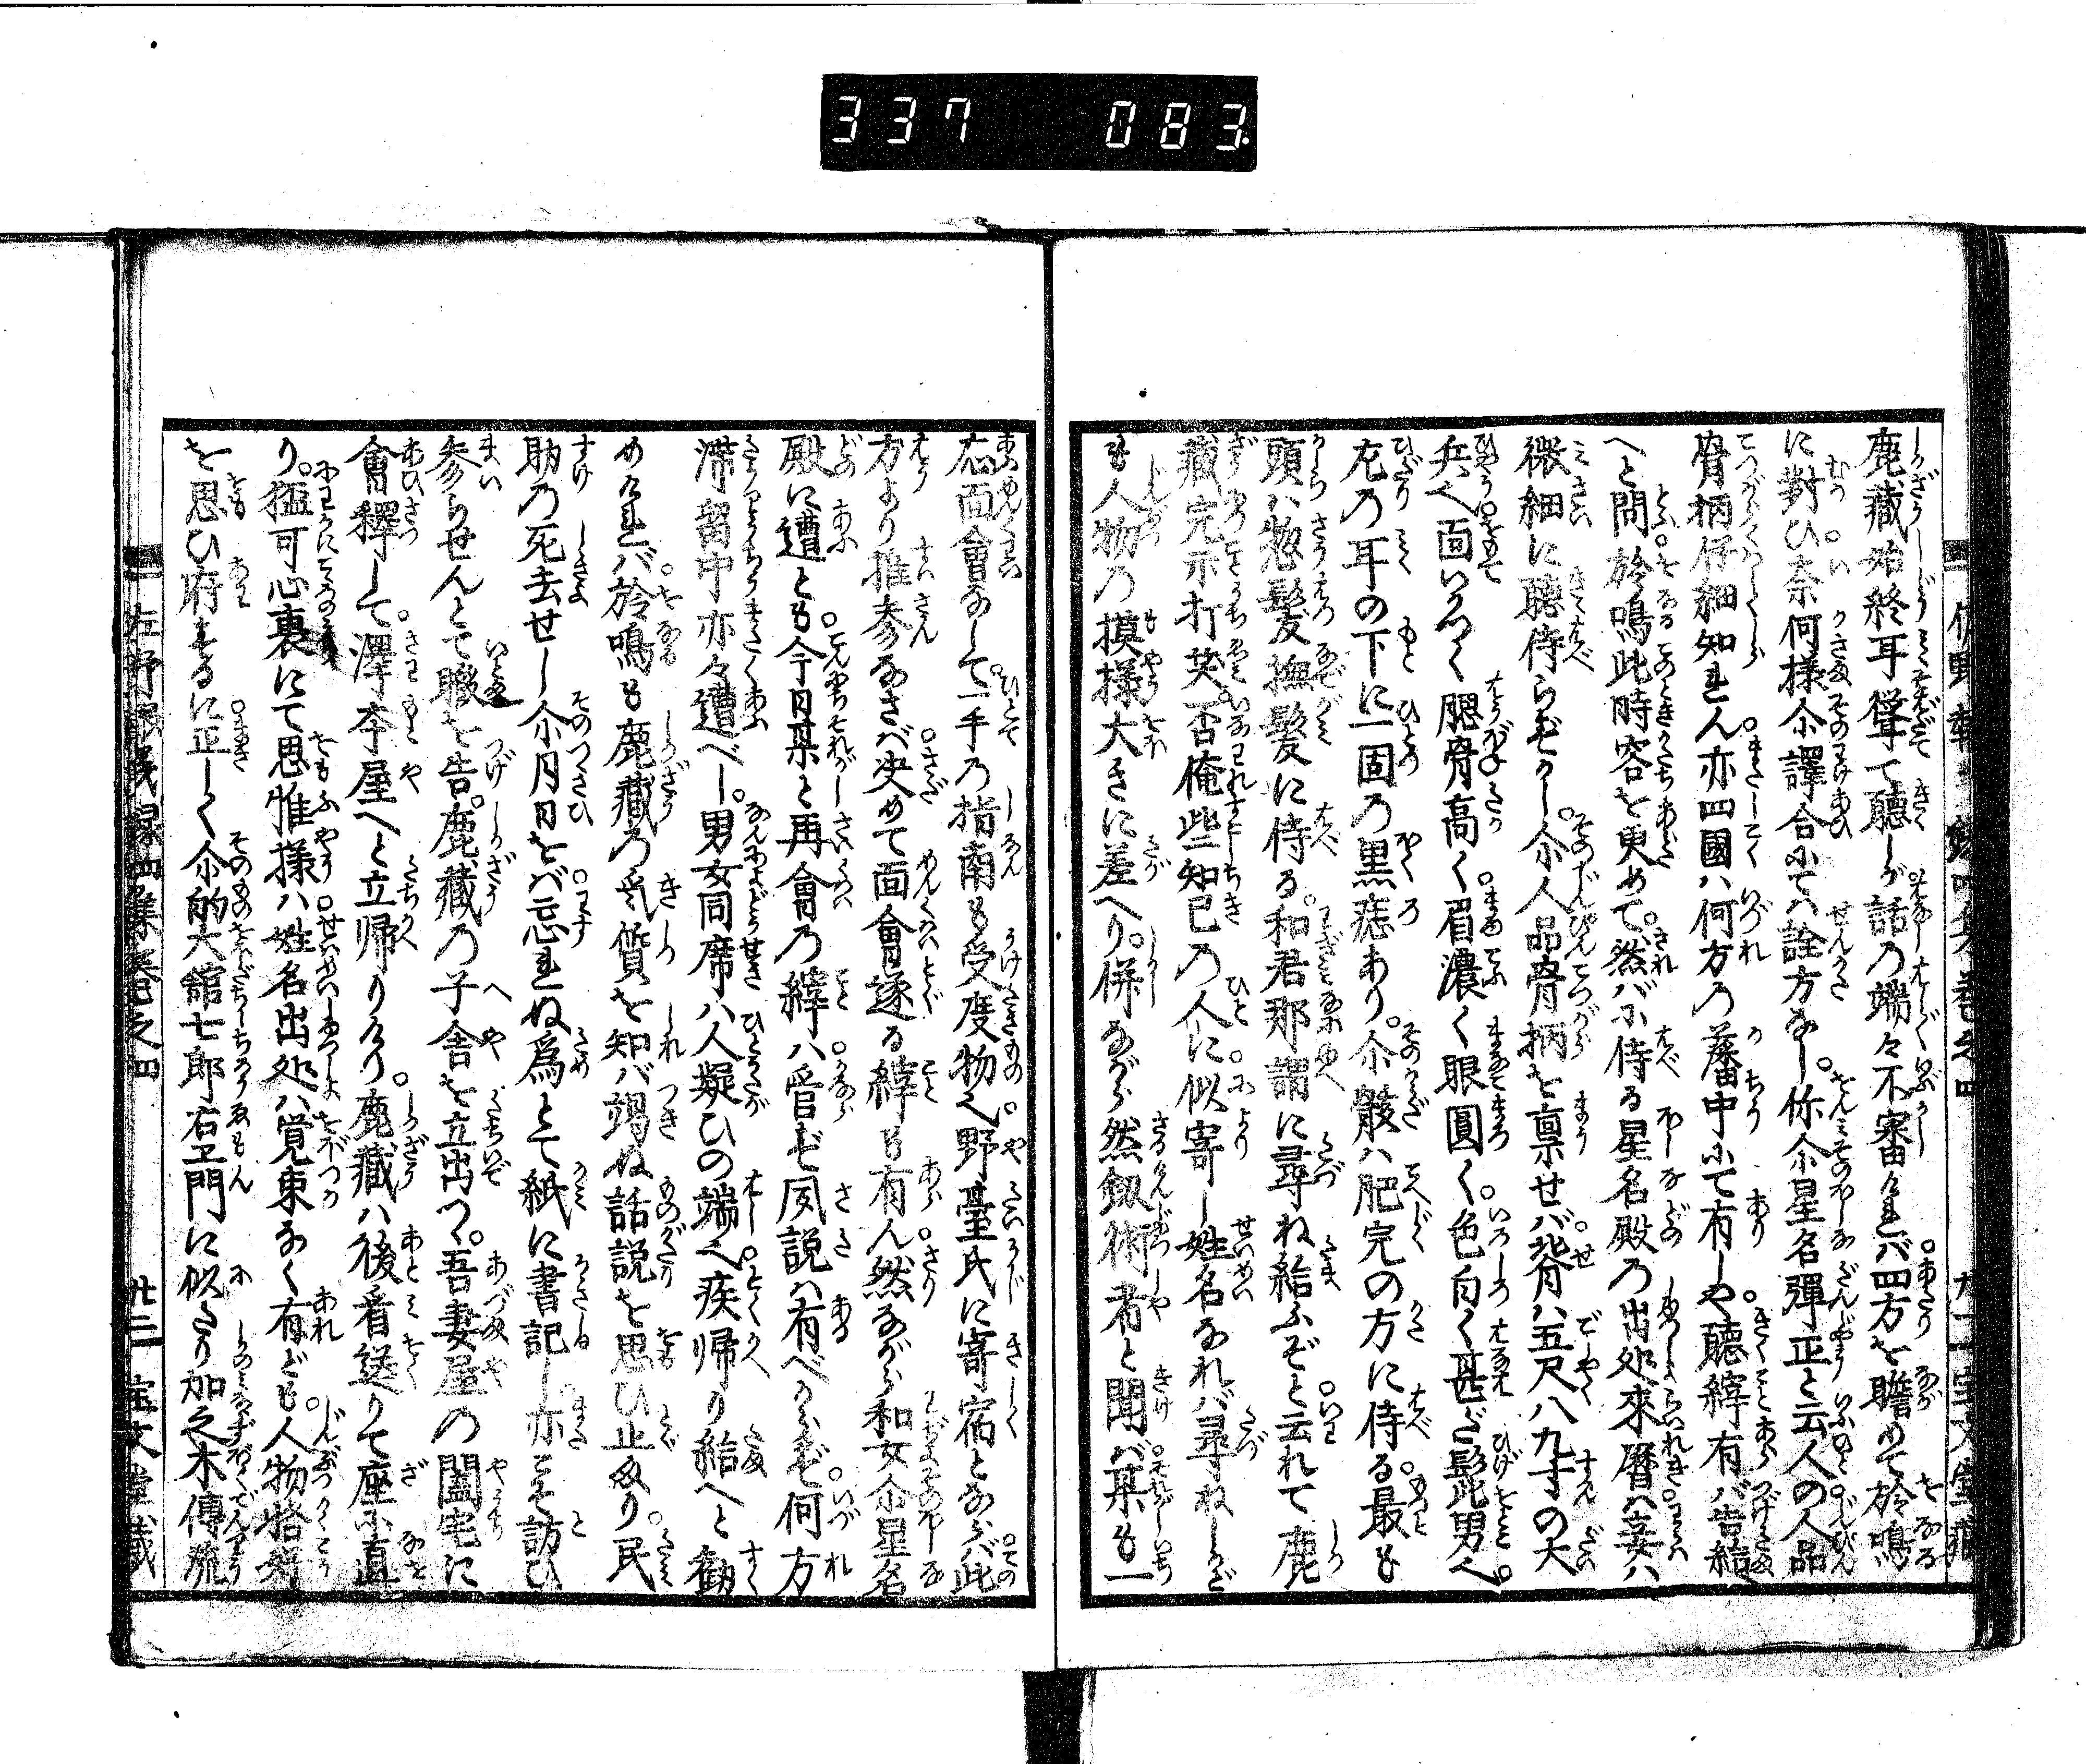 337 083
鹿藏始終耳聳て聽しが話の端々不審ければ四方を瞻めて於鳴
に對ひ奈何様尒譯合にては詮方なし。你尒星名彈正と云人の人品
骨柄仔細知れん亦四國は何方の藩中にて有しや。聽縡有ば告給
へと問。於鳴此時容を更めて。然ばに侍る星名殿の出処來暦は妾は
微細に聽侍らぞかし。尒人品骨柄を稟せば。背は五尺八九寸の大
兵。面いかつく腮骨高く。眉濃く眼圓く。色白く甚ど髭男。
左の耳の下に一固の黒痣あり。尒骸は肥完の方に侍る。最も
頭は惣髪撫髪に侍る。和君那謂に尋ね給ふぞと云れて鹿
藏完尓打笑。否俺些知己の人に似寄し姓名なれば尋ねしかど
も人物の摸様大きに差へり。併ながら然釼術者と聞ば。某も一
応面會なして。一手の指南も受度物。野臺氏に寄宿とならば。此
方より推参なさば。决めて面會遂る縡も有ん。然ながら和女尒星名
殿に遭とも。今日某と再會の縡は。管ぞ夙説は有べからぞ。何方
滞留中亦々遭べし。男女同席は人疑ひの端。疾帰り給へと勸
めければ。於鳴も鹿藏の気質を知ば竭ぬ話説を思ひ止めり。民
助の死去せし尒月日をば忘れぬ爲とて紙に書記し。亦こそ訪ひ
参らせんとて暇を告。鹿藏の子舎を立出つ。吾妻屋の闔宅に
會釋して。澤本屋へと立帰りけり。鹿藏は後看送りて座に直
り。猛可心裏にて思惟様は。姓名出処は覚束なく有ども。人物恰好
を思ひ府するに。正しく尒的大舘七郎右エ門に似たり。加之木傳流
四集巻之四
廿二 宝文堂藏